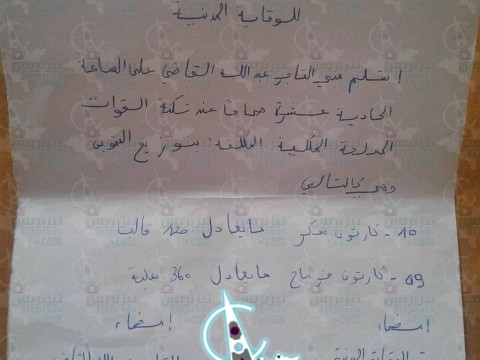 للوقاية المدنية
إستلم مني التاجر عبد الله القاضي على الساعة
الحادية عشرة صباحا عند ثكنة القوات
المسلحة الملكية المكلفة بتوزيع التموين
وهي كالتالي
10 - كارتون سكر ما يعادل 120 قالبا
09 - كارتون فرماج ما يعادل 360 علبة
إمضاء إمضاء